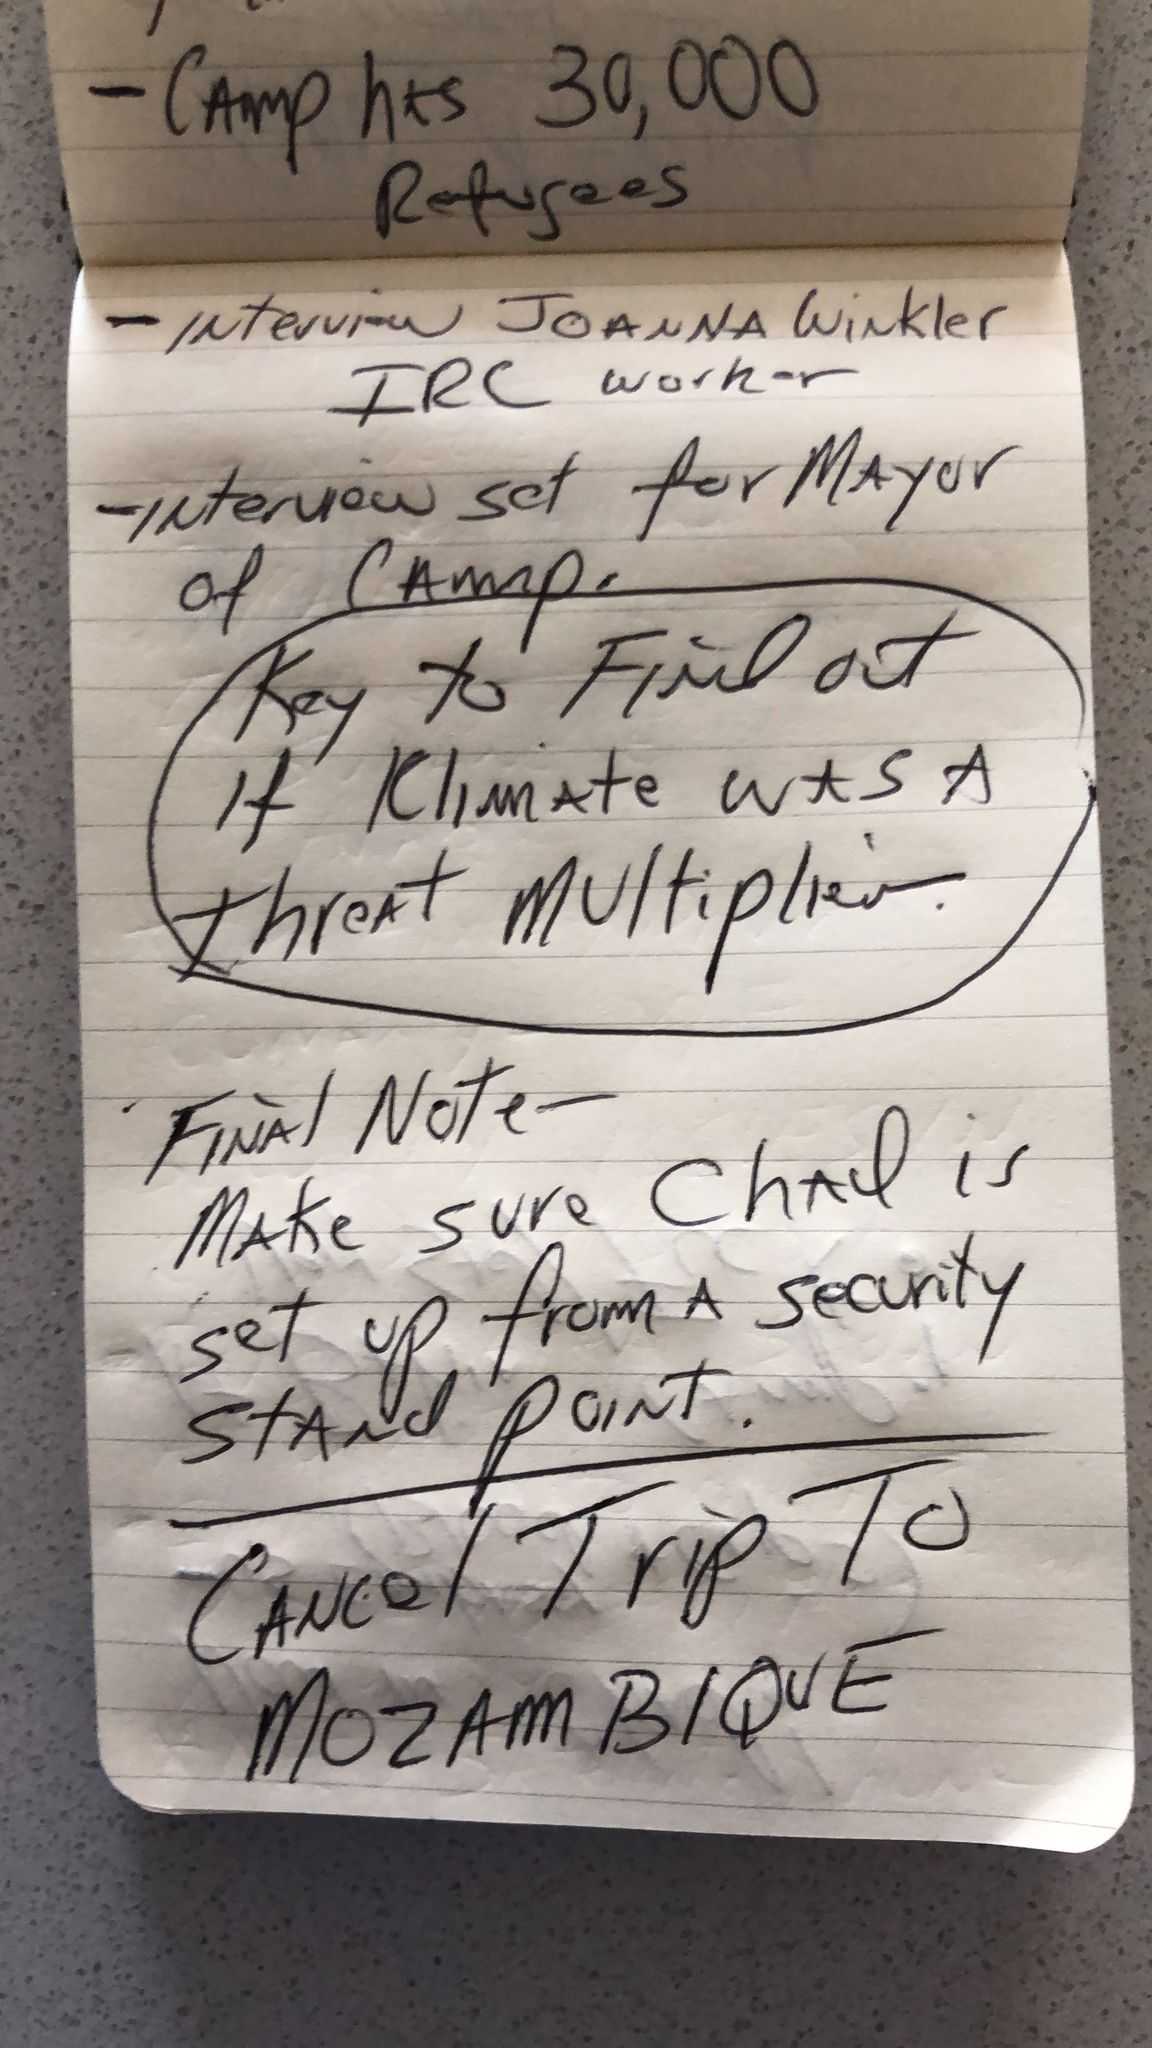 - CAmp hAs 30,000
Refugees
- Interview JOANNA Winkler
IRC worker
- Interview set for MAyor
of CAmp.
Key to Find out
If KlimAte wAs A
threAt Multiplier.
FinAl Note -
MAke sure ChAd is
set up from A security
stAnd point.
CANcel Trip To
MOZAMBIQUE